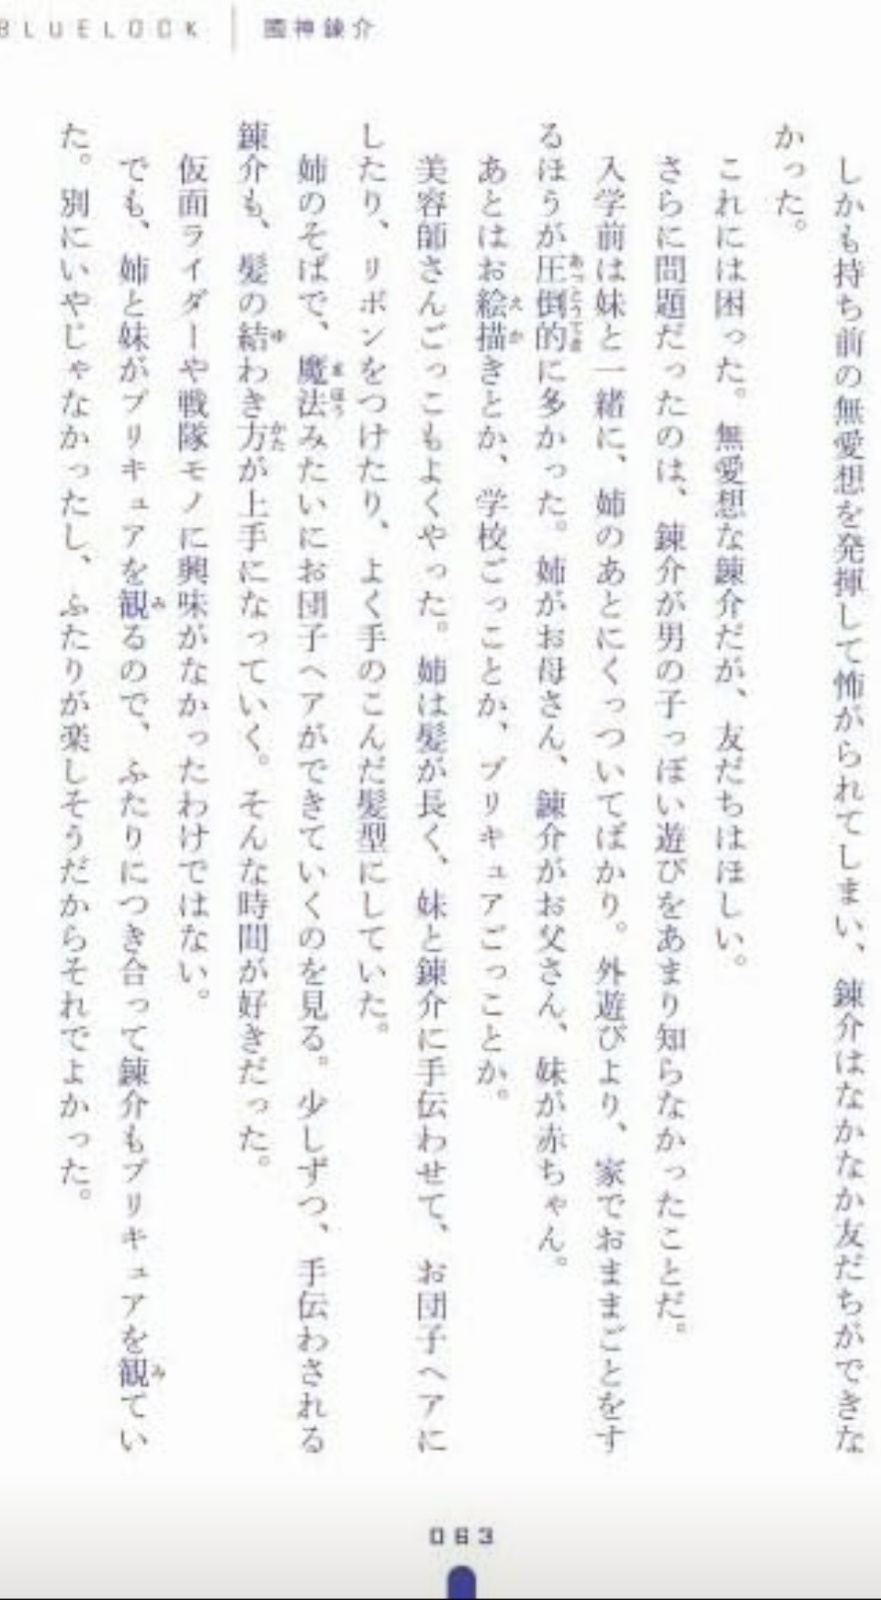 BLUELOCK 國神錬介
しかも持ち前の無愛想を発揮して怖がられてしまい、錬介はなかなか友だちができな
かった。
これには困った。無愛想な錬介だが、友だちはほしい。
さらに問題だったのは、錬介が男の子っぽい遊びをあまり知らなかったことだ。
入学前は妹と一緒に、姉のあとにくっついてばかり。外遊びより、家でおままごとをす
るほうが圧倒的に多かった。姉がお母さん、錬介がお父さん、妹が赤ちゃん。
あとはお絵描きとか、学校ごっことか、プリキュアごっことか。
美容師さんごっこもよくやった。姉は髪が長く、妹と錬介に手伝わせて、お団子ヘアに
したり、リボンをつけたり、よく手のこんだ髪型にしていた。
姉のそばで、魔法みたいにお団子ヘアができていくのを見る。少しずつ、手伝わされる
錬介も、髪の結わき方が上手になっていく。そんな時間が好きだった。
仮面ライダーや戦隊モノに興味がなかったわけではない。
でも、姉と妹がプリキュアを観るので、ふたりにつき合って錬介もプリキュアを観てい
た。別にいやじゃなかったし、ふたりが楽しそうだからそれでよかった。
063